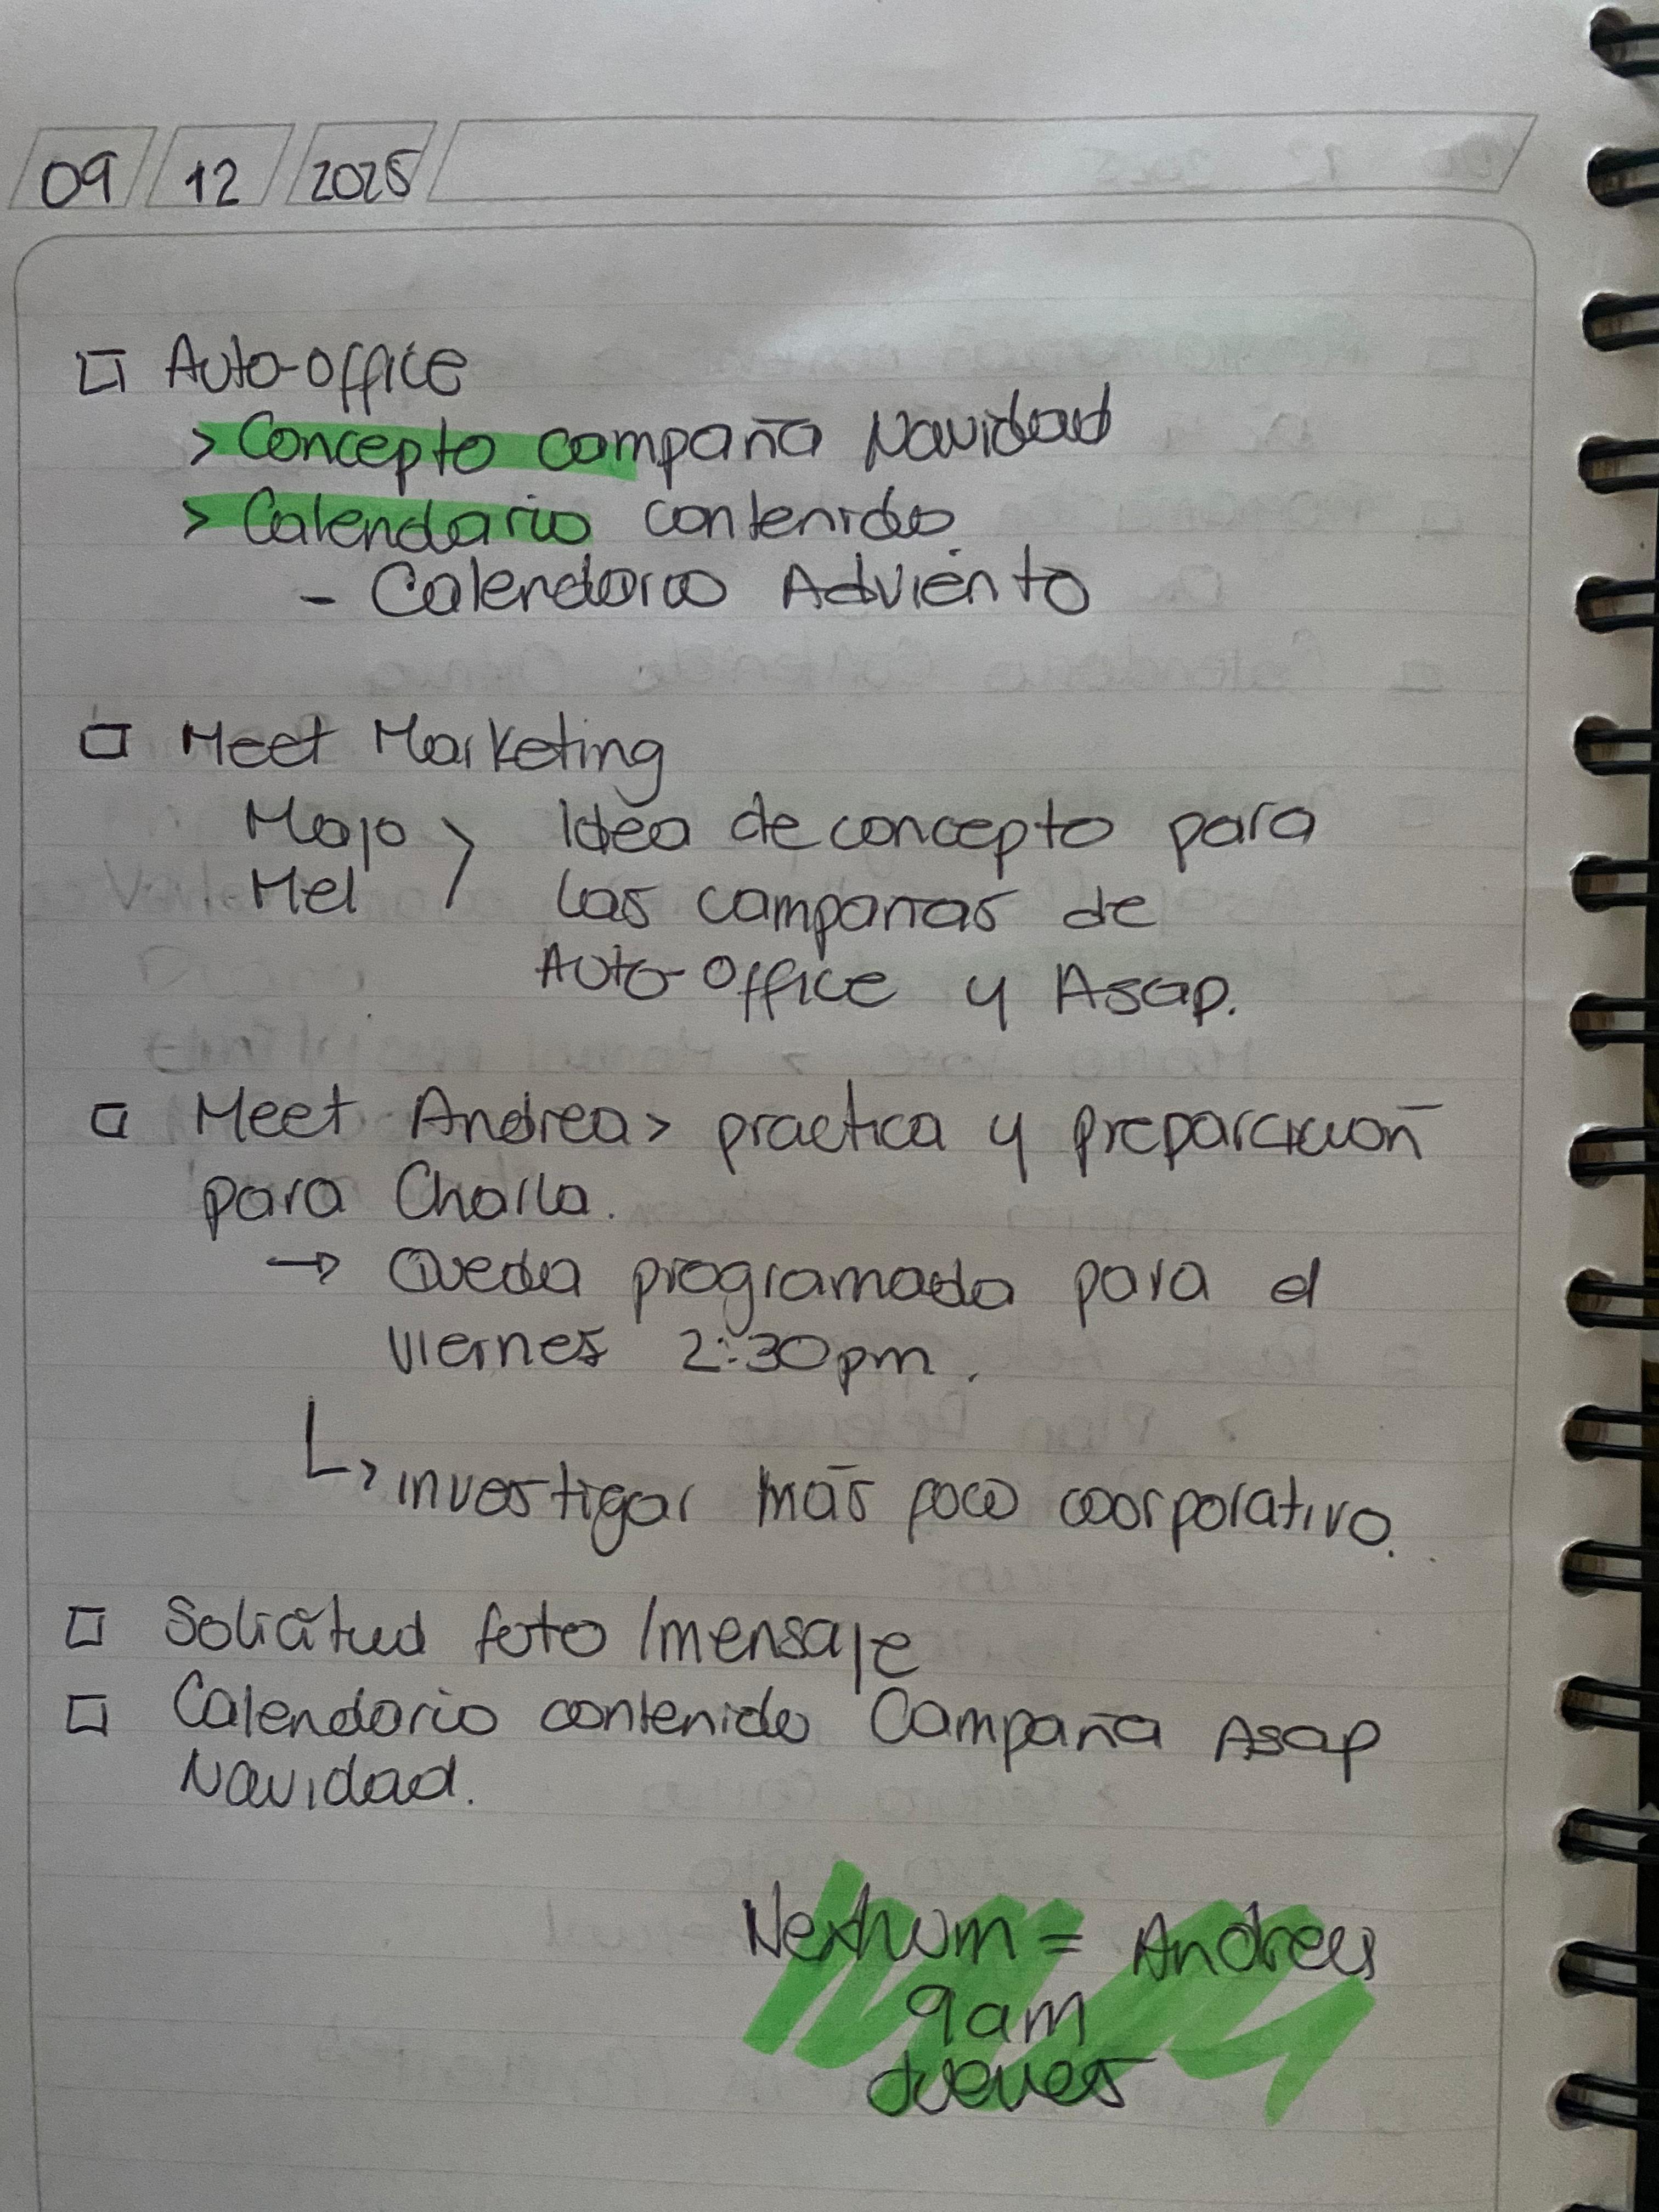 09 12 2025
□ Auto-office
> Concepto campaña Navidad
> Calendario contenido.
- Calendario Adviento
□ Meet Marketing
Majo > Idea de concepto para
Mel las campañas de
Auto-Office y Asap.
□ Meet Andrea > practica y preparación
para Charla.
→ Queda programada para el
viernes 2:30pm.
↳ investigar más foco coorporativo.
□ Solicitud foto/mensaje
□ Calendario contenido Campaña Asap
Navidad.
Nexhum = Andrea
9am
Jueves